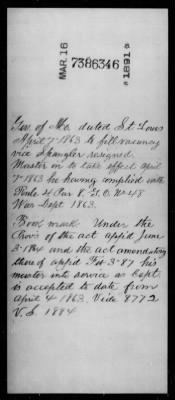 MAR. 16
7386346
1891
Gov. of Mo. dated St. Louis
April 7-1863 to fill vacancy
vice Spangler resigned.
Muster in to take effect April
7-1863 he having complied with
Rule 4 Par 8. G.O. No 48
War Dept 1863.
Book mark. Under the
Provs of the act app'd June
3-1884 and the act amendatory
thereof app'd Feb 3-87 his
muster into service as Capt.
is accepted to date from
April 4-1863. Vide 8772
V.S. 1884